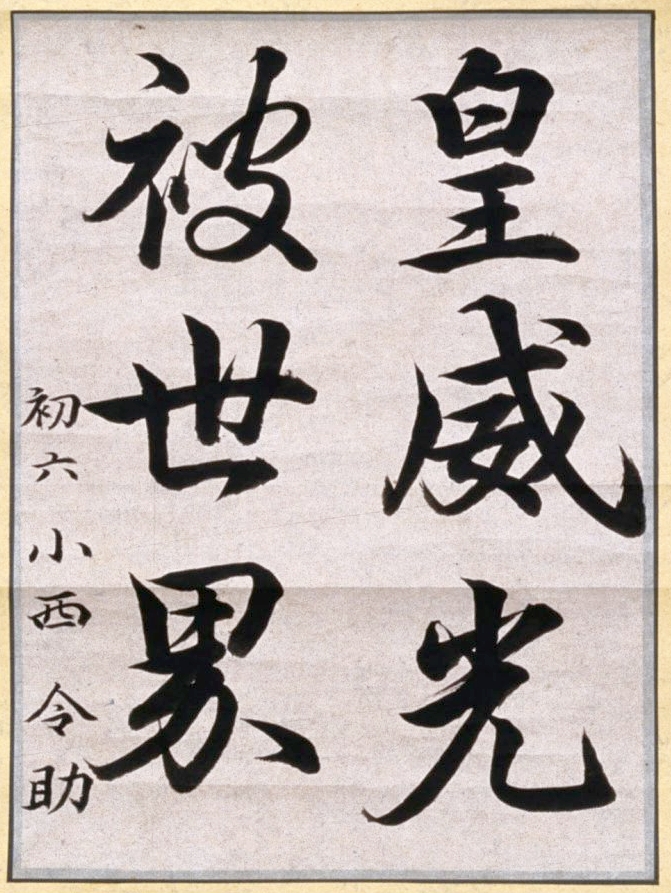 皇威光
被世界
初六 小西 令助